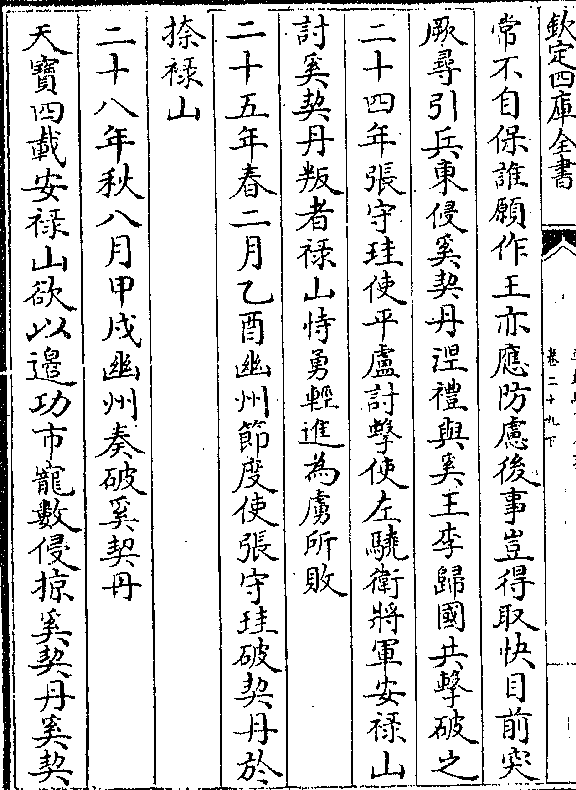 欽定四庫全書
卷二十九下
常不自保誰願作王亦應防慮後事豈得取快目前突
厥尋引兵東侵奚契丹涅禮與奚王李歸國共擊破之
二十四年張守珪使平盧討擊使左驍衛將軍安祿山
討奚契丹叛者祿山恃勇輕進為虜所敗
二十五年春二月乙酉幽州節度使張守珪破契丹於
捺祿山
二十八年秋八月甲戌幽州奏破奚契丹
天寶四載安祿山欲以邉功市寵數侵掠奚契丹奚契